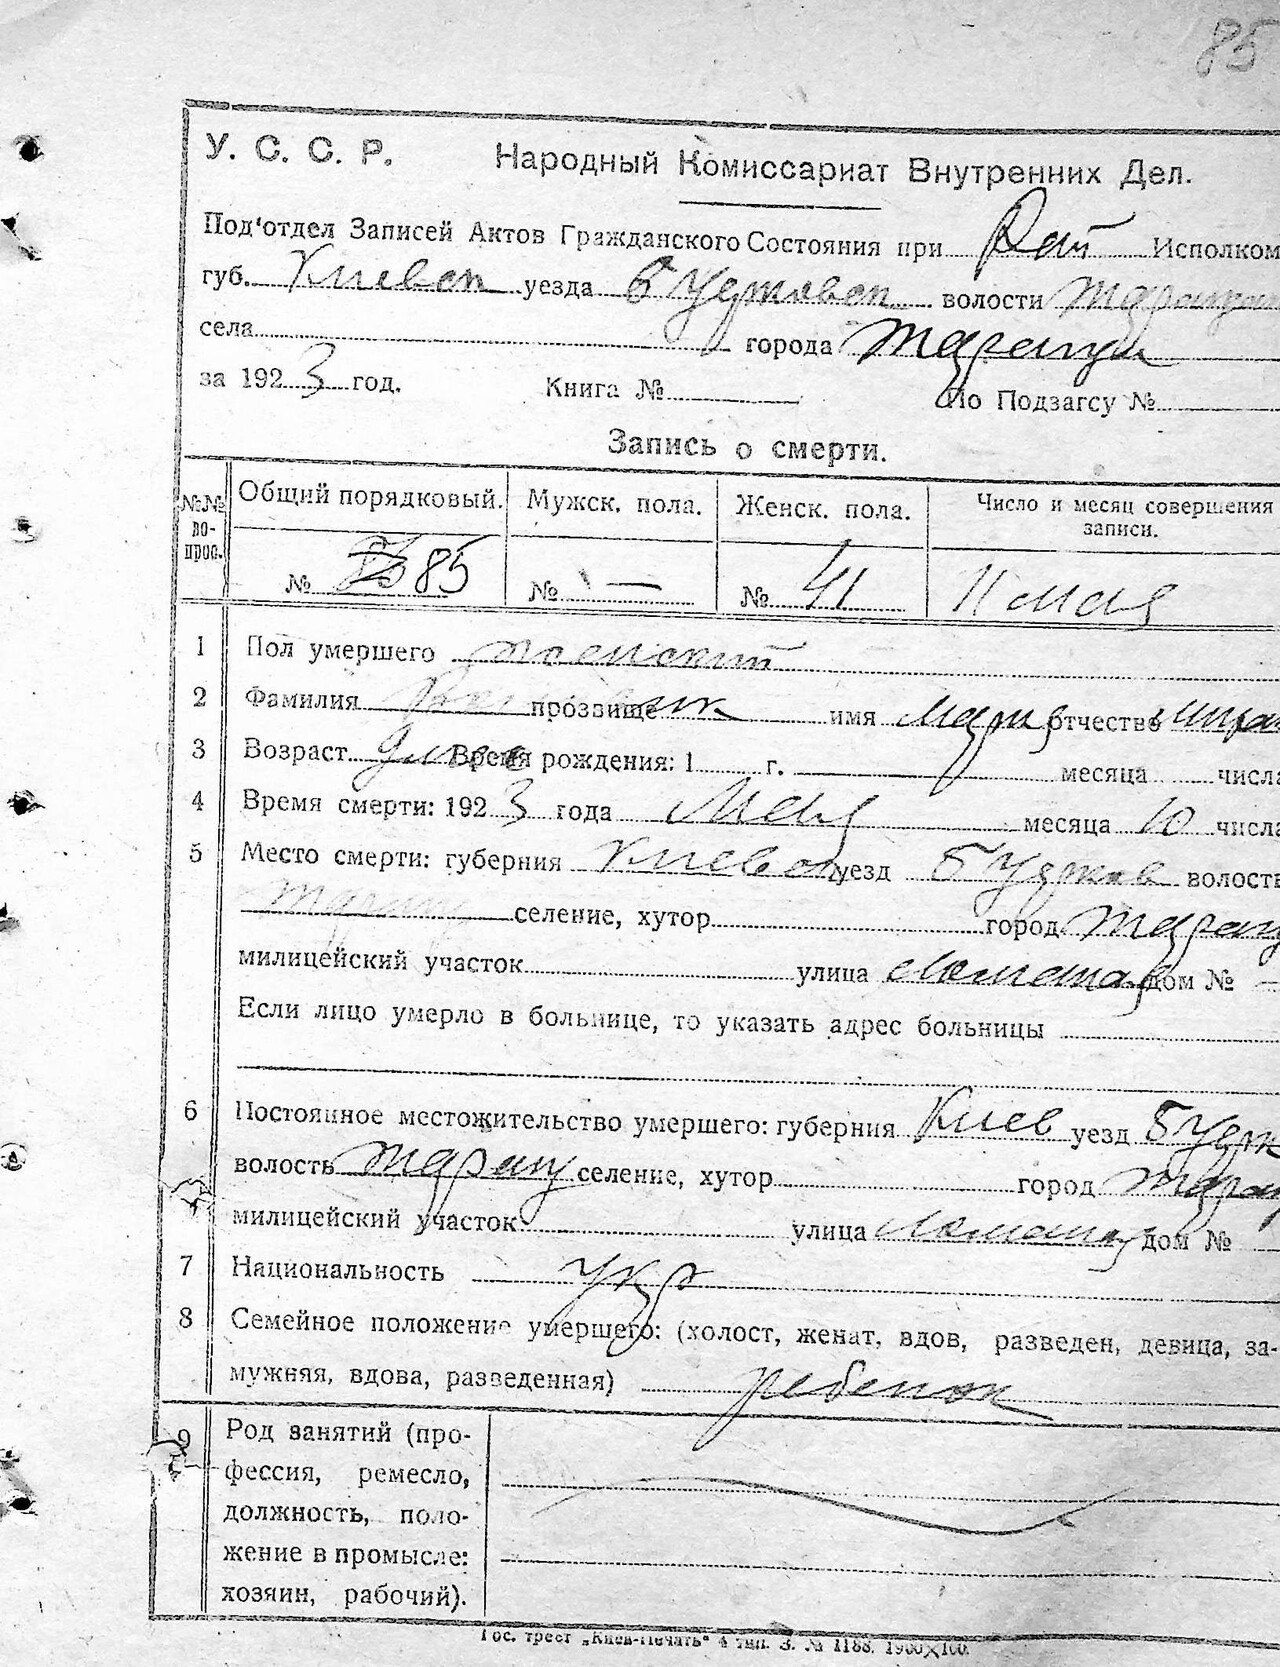 85
У. С. С. Р. Народный Комиссариат Внутренних Дел.
Под'отдел Записей Актов Гражданского Состояния при Рай Исполком
губ. Киевск уезда волости
села города Тараща
за 1923 год. Книга № По Подзагсу №
Запись о смерти.
№№ во- прос. Общий порядковый. Мужск. пола. Женск. пола. Число и месяц совершения записи.
№ 85 № — № 41 11 мая
1 Пол умершего женский
2 Фамилия прозвище имя Мария отчество
3 Возраст Время рождения: 1 г. месяца числа
4 Время смерти: 1923 года Мая месяца 10 числа
5 Место смерти: губерния Киевск уезд волость
селение, хутор город Таращ
милицейский участок улица дом № —
Если лицо умерло в больнице, то указать адрес больницы
6 Постоянное местожительство умершего: губерния Киев уезд
волость Таращ селение, хутор город Таращ
милицейский участок улица дом №
7 Национальность укр
8 Семейное положение умершего: (холост, женат, вдов, разведен, девица, за-
мужняя, вдова, разведенная) ребенок
9 Род занятий (про-
фессия, ремесло,
должность, поло-
жение в промысле:
хозяин, рабочий).
Гос. трест „Киев-Печать“ 4 тип. З. № 1188. 1900×100.